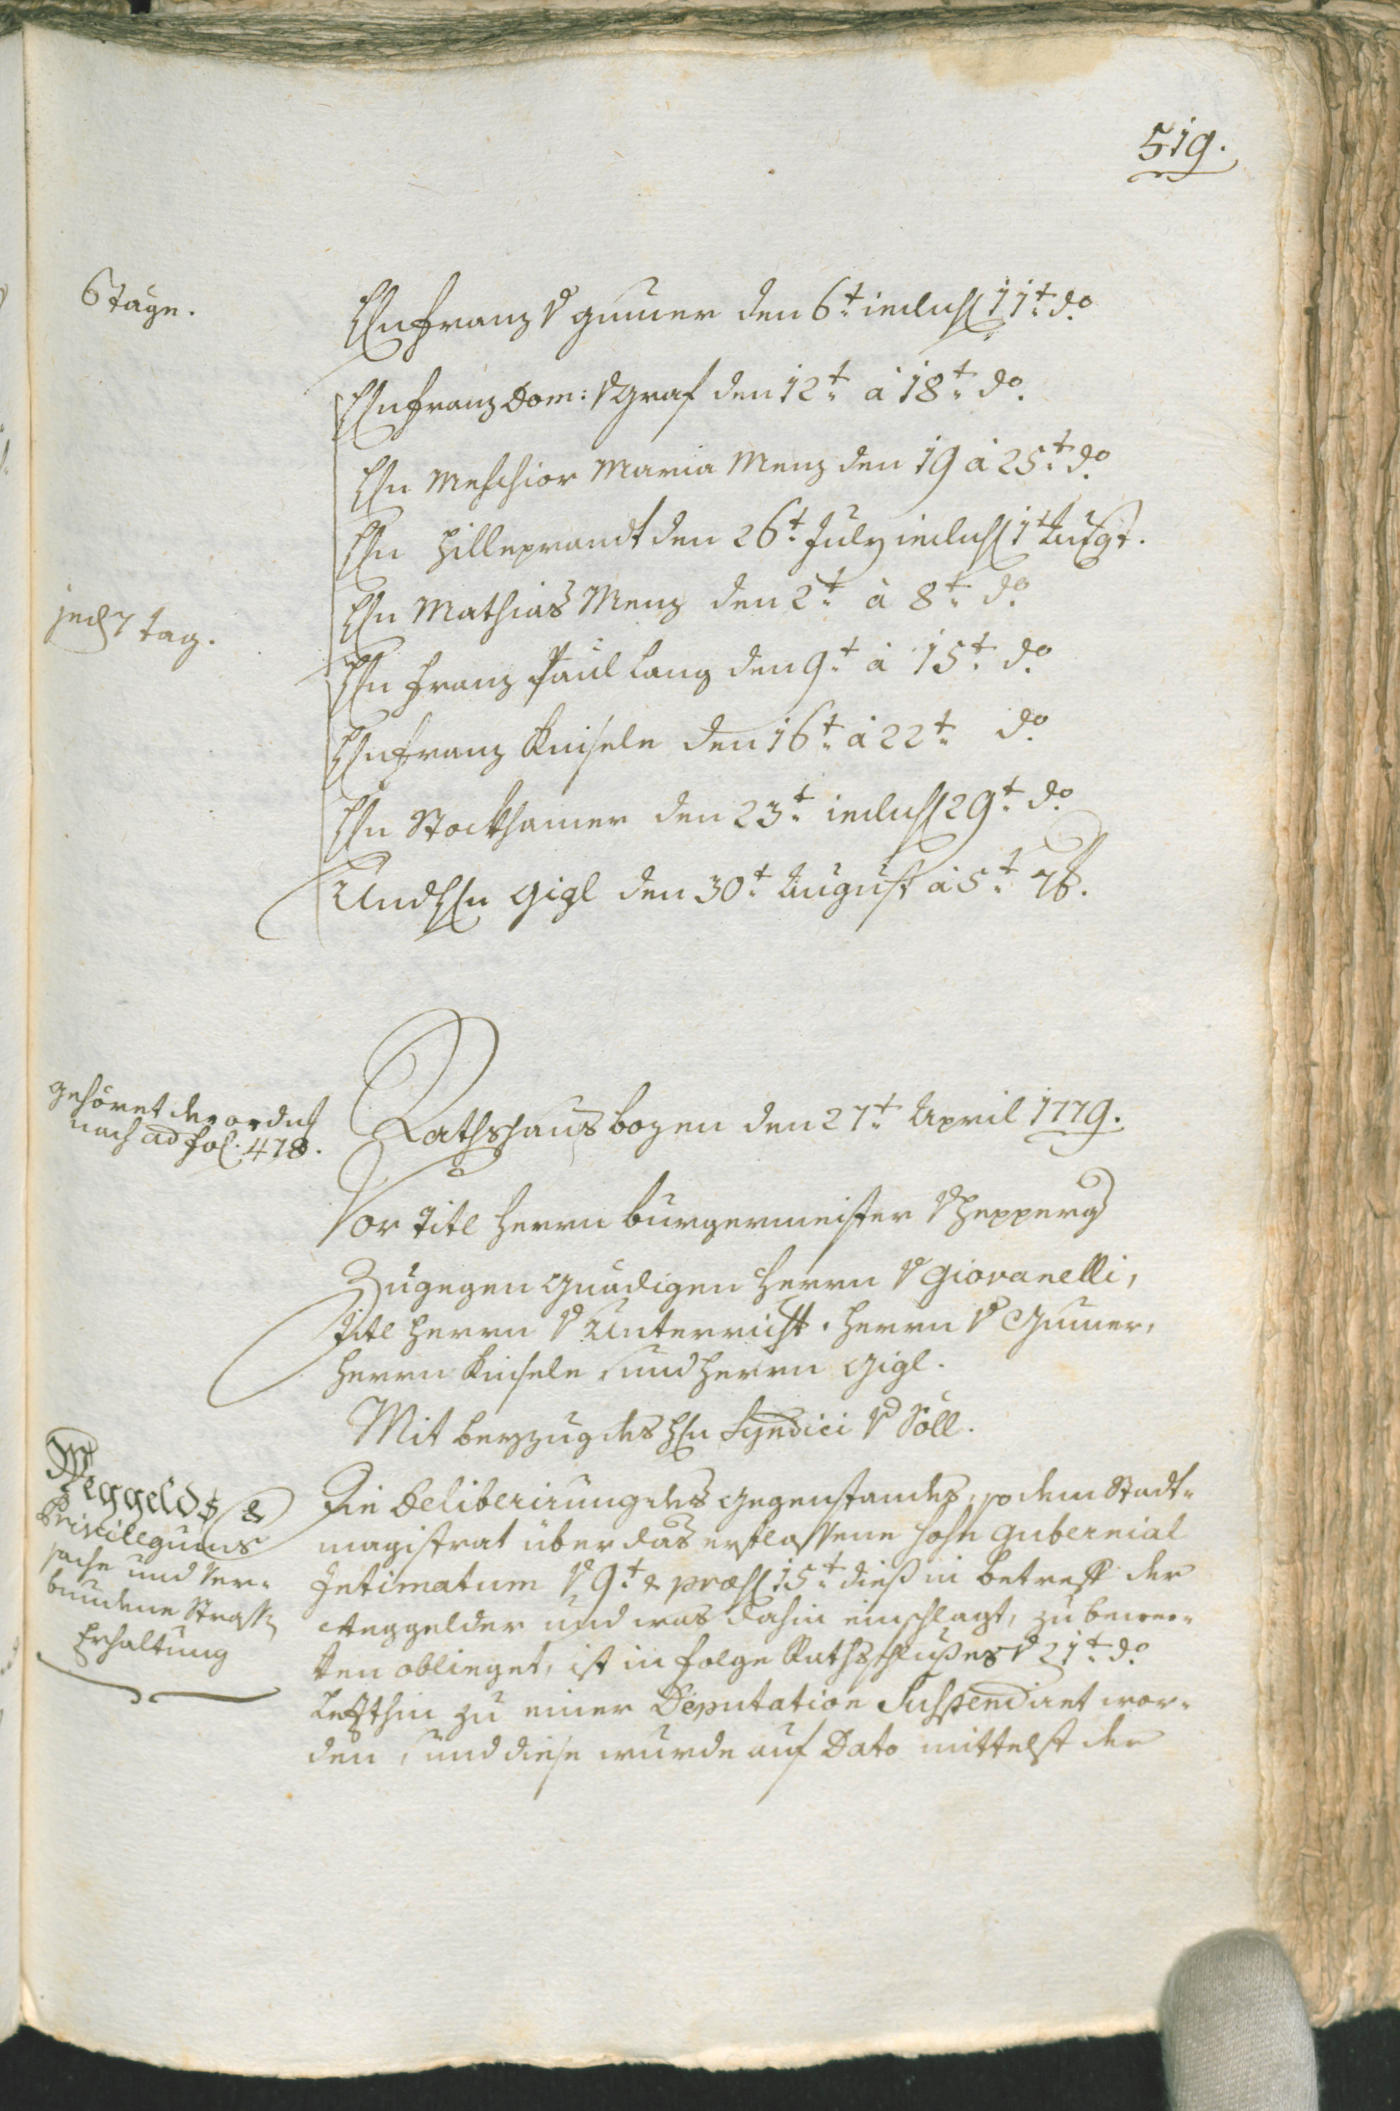 519.
6 täge.
Hn franz v gumer den 6t inclus 11t do
Hn franz Dom: v Graf den 12t à 18t do.
Hn Melchior Maria Menz den 19 à 25t do
Hn Hilleprandt den 26t July inclus 1t Augst.
jed 7 tag.
Hn Mathias Menz den 2t à 8t do
Hn franz Paul Lang den 9t à 15t do
Hn franz Kniseln den 16t à 22t do
Hn Stockhamer den 23t inclus 29t do
Und Hn Gigl den 30t August à 5t 7b.
gehöret der ordnſ
nach ad fol: 478.
Rathshaus bozen den 27t April 1779.
Vor Titl Herrn burgermeister v Hepperg
Zugegen gnädigen Herrn v Giovanelli,
Titl Herrn v Unterricht. Herrn v Gumer,
Herrn Kniseln, und Herrn Gigl.
Mit beyzug des Hn Syndici v Söll.
Weggelds &
Privilegiums
sache und ver-
bundene Strass
Erhaltung
Die Deliberirung des gegenstandes, so dem Stadt-
magistrat über das erflossene hohe gubernial
Intimatum v 9t & præs 15t dieß in betreff der
Weggelder und was dahin einschlagt, zu beiwor-
ten oblieget, ist in folge Rathsschlußes v 21t do
letsthin zu einer Deputation Suspendiret wor-
den, und diese wurde auf Dato mittelst der